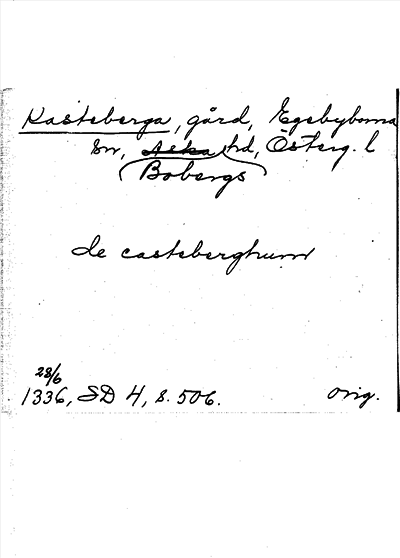 Kasteberga, gård, Egebyborna
sn, Aska hd, Österg. l
Bobergs
de casteberghum
28/6
1336, SD 4, s. 506. orig.